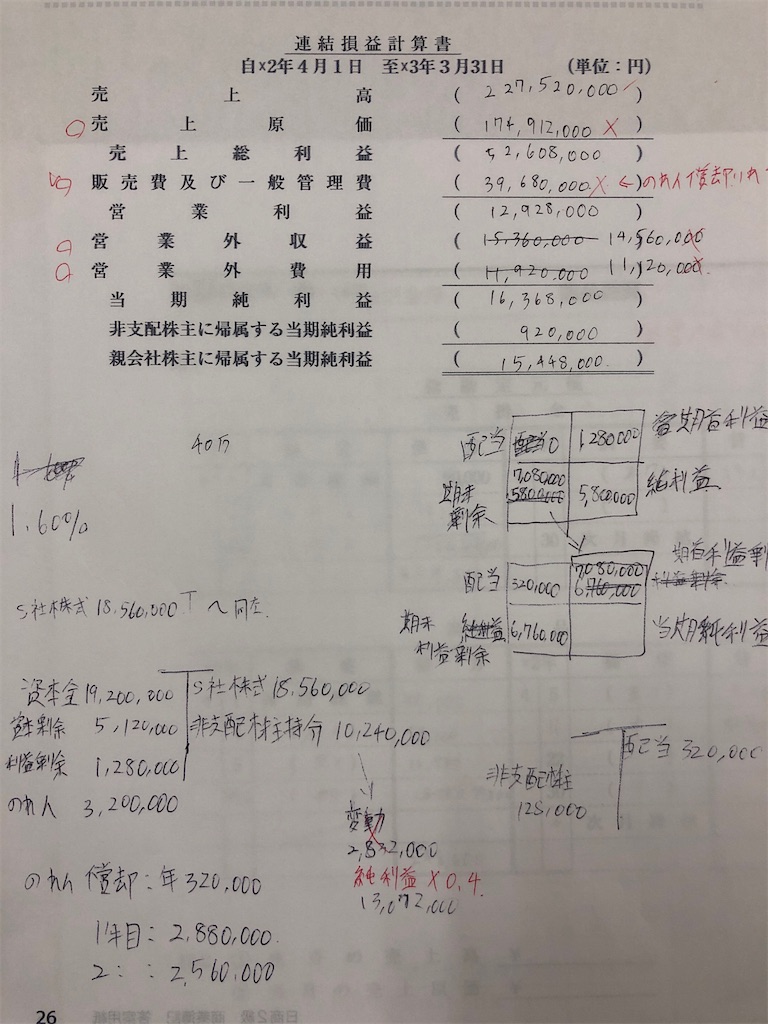 連結損益計算書
自x2年4月1日 至x3年3月31日 (単位：円)
売上高 ( 227,520,000 )
売上原価 ( 174,912,000 )
売上総利益 ( 52,608,000 )
販売費及び一般管理費 ( 39,680,000 ) ←のれん償却
営業利益 ( 12,928,000 )
営業外収益 ( 15,360,000 ) 14,560,000
営業外費用 ( 11,920,000 ) 11,120,000
当期純利益 ( 16,368,000 )
非支配株主に帰属する当期純利益 ( 920,000 )
親会社株主に帰属する当期純利益 ( 15,448,000 )
40万
1.60%
配当 0 1,280,000
7,080,000
期末 5,800,000 5,800,000 純利益
剰余
7,080,000
配当 320,000 6,760,000 利益剰余
期末 純利益 6,760,000 当期純利益
利益剰余
S社株式 18,560,000
資本金 19,200,000 S社株式 18,560,000
資本剰余 5,120,000 非支配株主持分 10,240,000
利益剰余 1,280,000
のれん 3,200,000
配当 320,000
非支配株主
128,000
変動
2,832,000
純利益×0.4
13,072,000
のれん償却：年320,000
1年目：2,880,000
2：：2,560,000
26